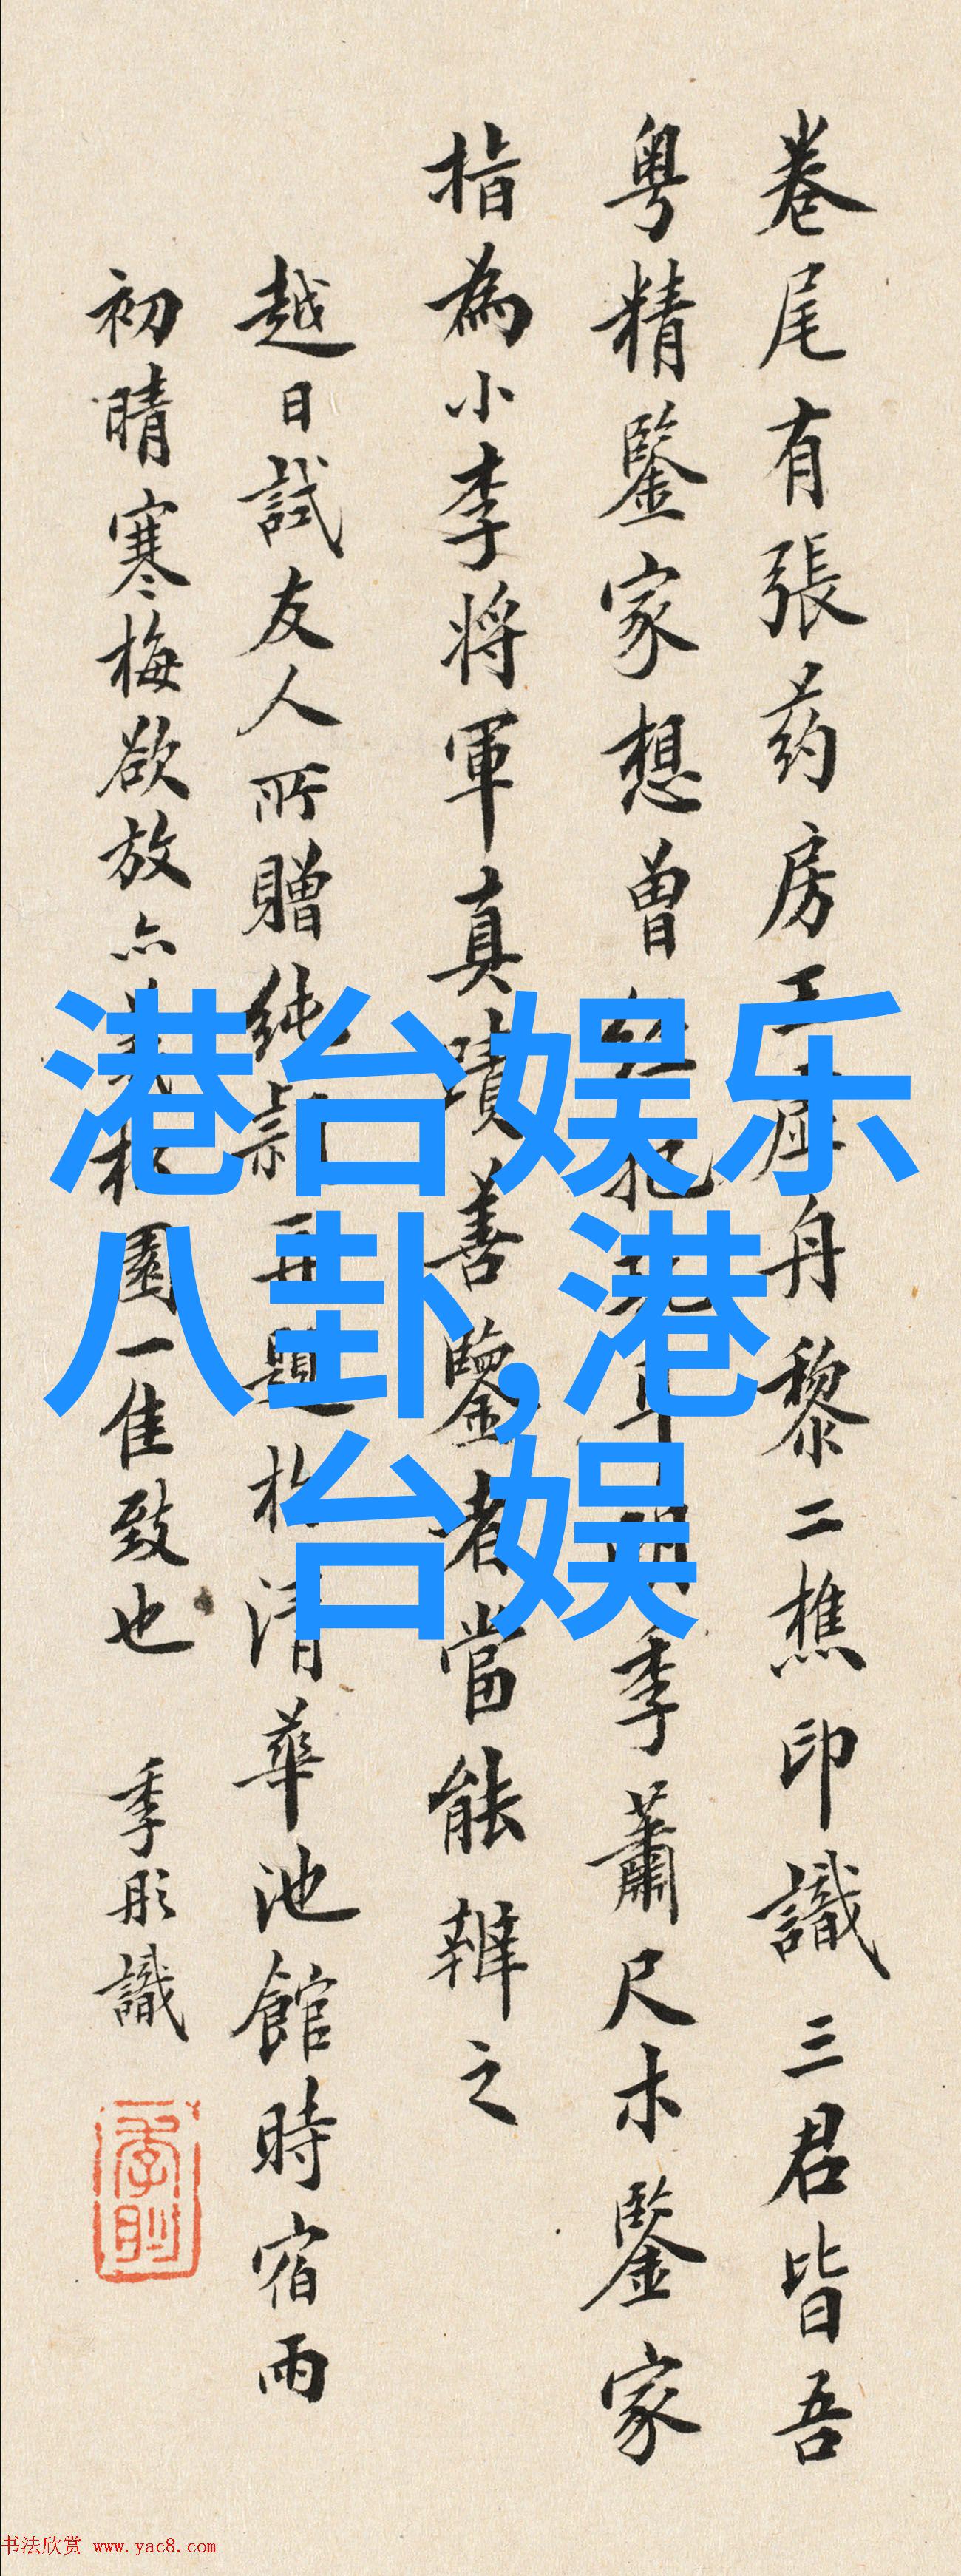 卷尾有張药房王舟黎二樵印識三君皆吾
粤精鑒家想曾季蕭尺木鑒家
指為小李將軍真蹟善鑒者當能辨之
越日試友人所贈純穎再題於清華池館時宿雨
初晴寒梅欲放亦園一佳致也 季彤識
港台娱乐
八卦,港
台娱
书法欣赏 www.yac8.com